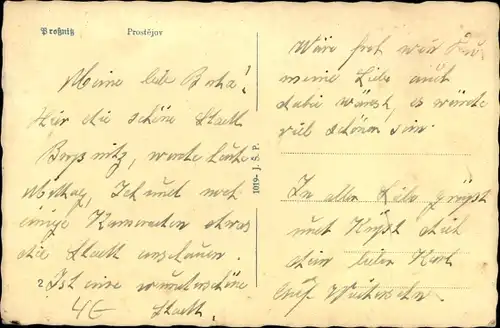 Proßnitz Prostějov
Meine liebe Berta!
Hier die schöne Stadt
war heute
Mittag, Ich und noch
einige Kameraden etwas
die Stadt anschauen.
2 Ist eine wunderschöne
Stadt.
1019- J. Š. P.
Wäre froh wen Du
meine Liebe auch
dabei wärest, es würde
viel schöner sein.
In aller Liebe grüßt
und Küßt dich
dein lieber Karl
Auf Wiedersehn